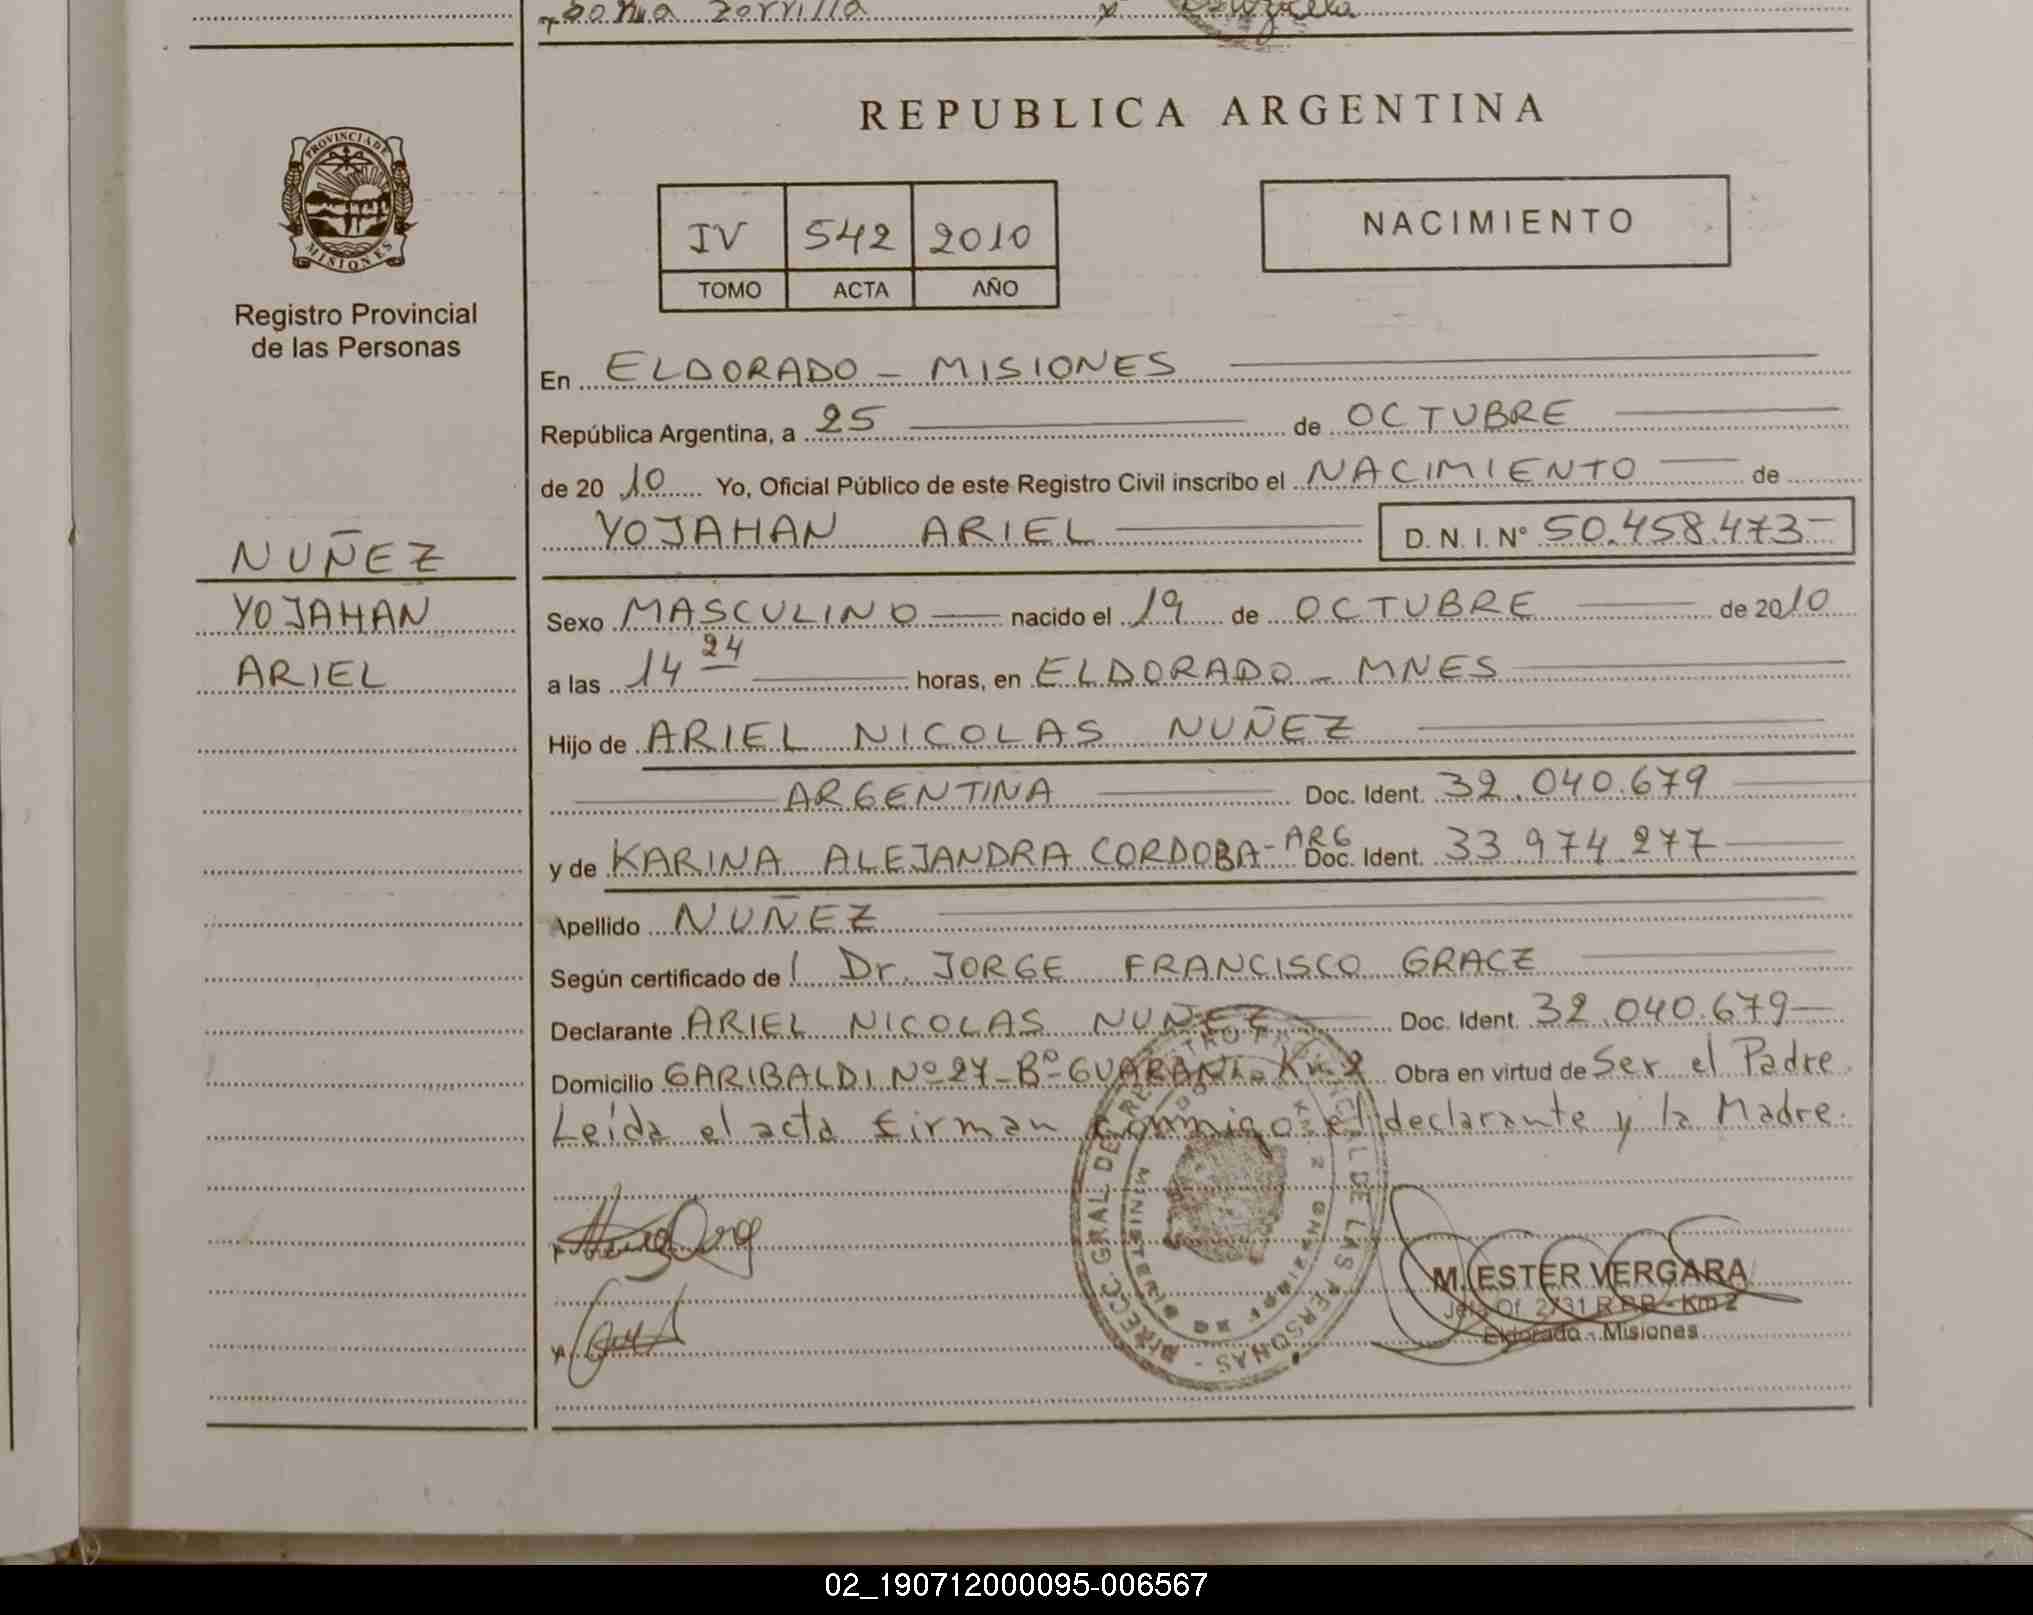 Sonia Zorrilla
PROVINCIA DE
MISIONES
Registro Provincial
de las Personas
NUÑEZ
YOJAHAN
ARIEL
REPUBLICA ARGENTINA
IV 542 2010
TOMO ACTA AÑO
NACIMIENTO
En ELDORADO - MISIONES
República Argentina, a 25 de OCTUBRE
de 2010 Yo, Oficial Público de este Registro Civil inscribo el NACIMIENTO de
YOJAHAN ARIEL D. N. I. Nº 50.458.473-
Sexo MASCULINO nacido el 19 de OCTUBRE de 2010
a las 14 24 horas, en ELDORADO - MNES
Hijo de ARIEL NICOLAS NUÑEZ
ARGENTINA Doc. Ident. 32.040.679
y de KARINA ALEJANDRA CORDOBA - ARG Doc. Ident. 33 974 277
Apellido NUÑEZ
Según certificado de l Dr. JORGE FRANCISCO GRACZ
Declarante ARIEL NICOLAS NUÑEZ Doc. Ident. 32.040.679
Domicilio GARIBALDI Nº 27 - Bº GUARANI - Km 2 Obra en virtud de Ser el Padre.
Leída el acta firman conmigo el declarante y la Madre.
DIRECC. GRAL DE REGISTRO PROVINCIAL DE LAS PERSONAS
M. ESTER VERGARA
Jefa Of. 2731 R.P.P. - Km 2
Eldorado - Misiones
02_190712000095-006567